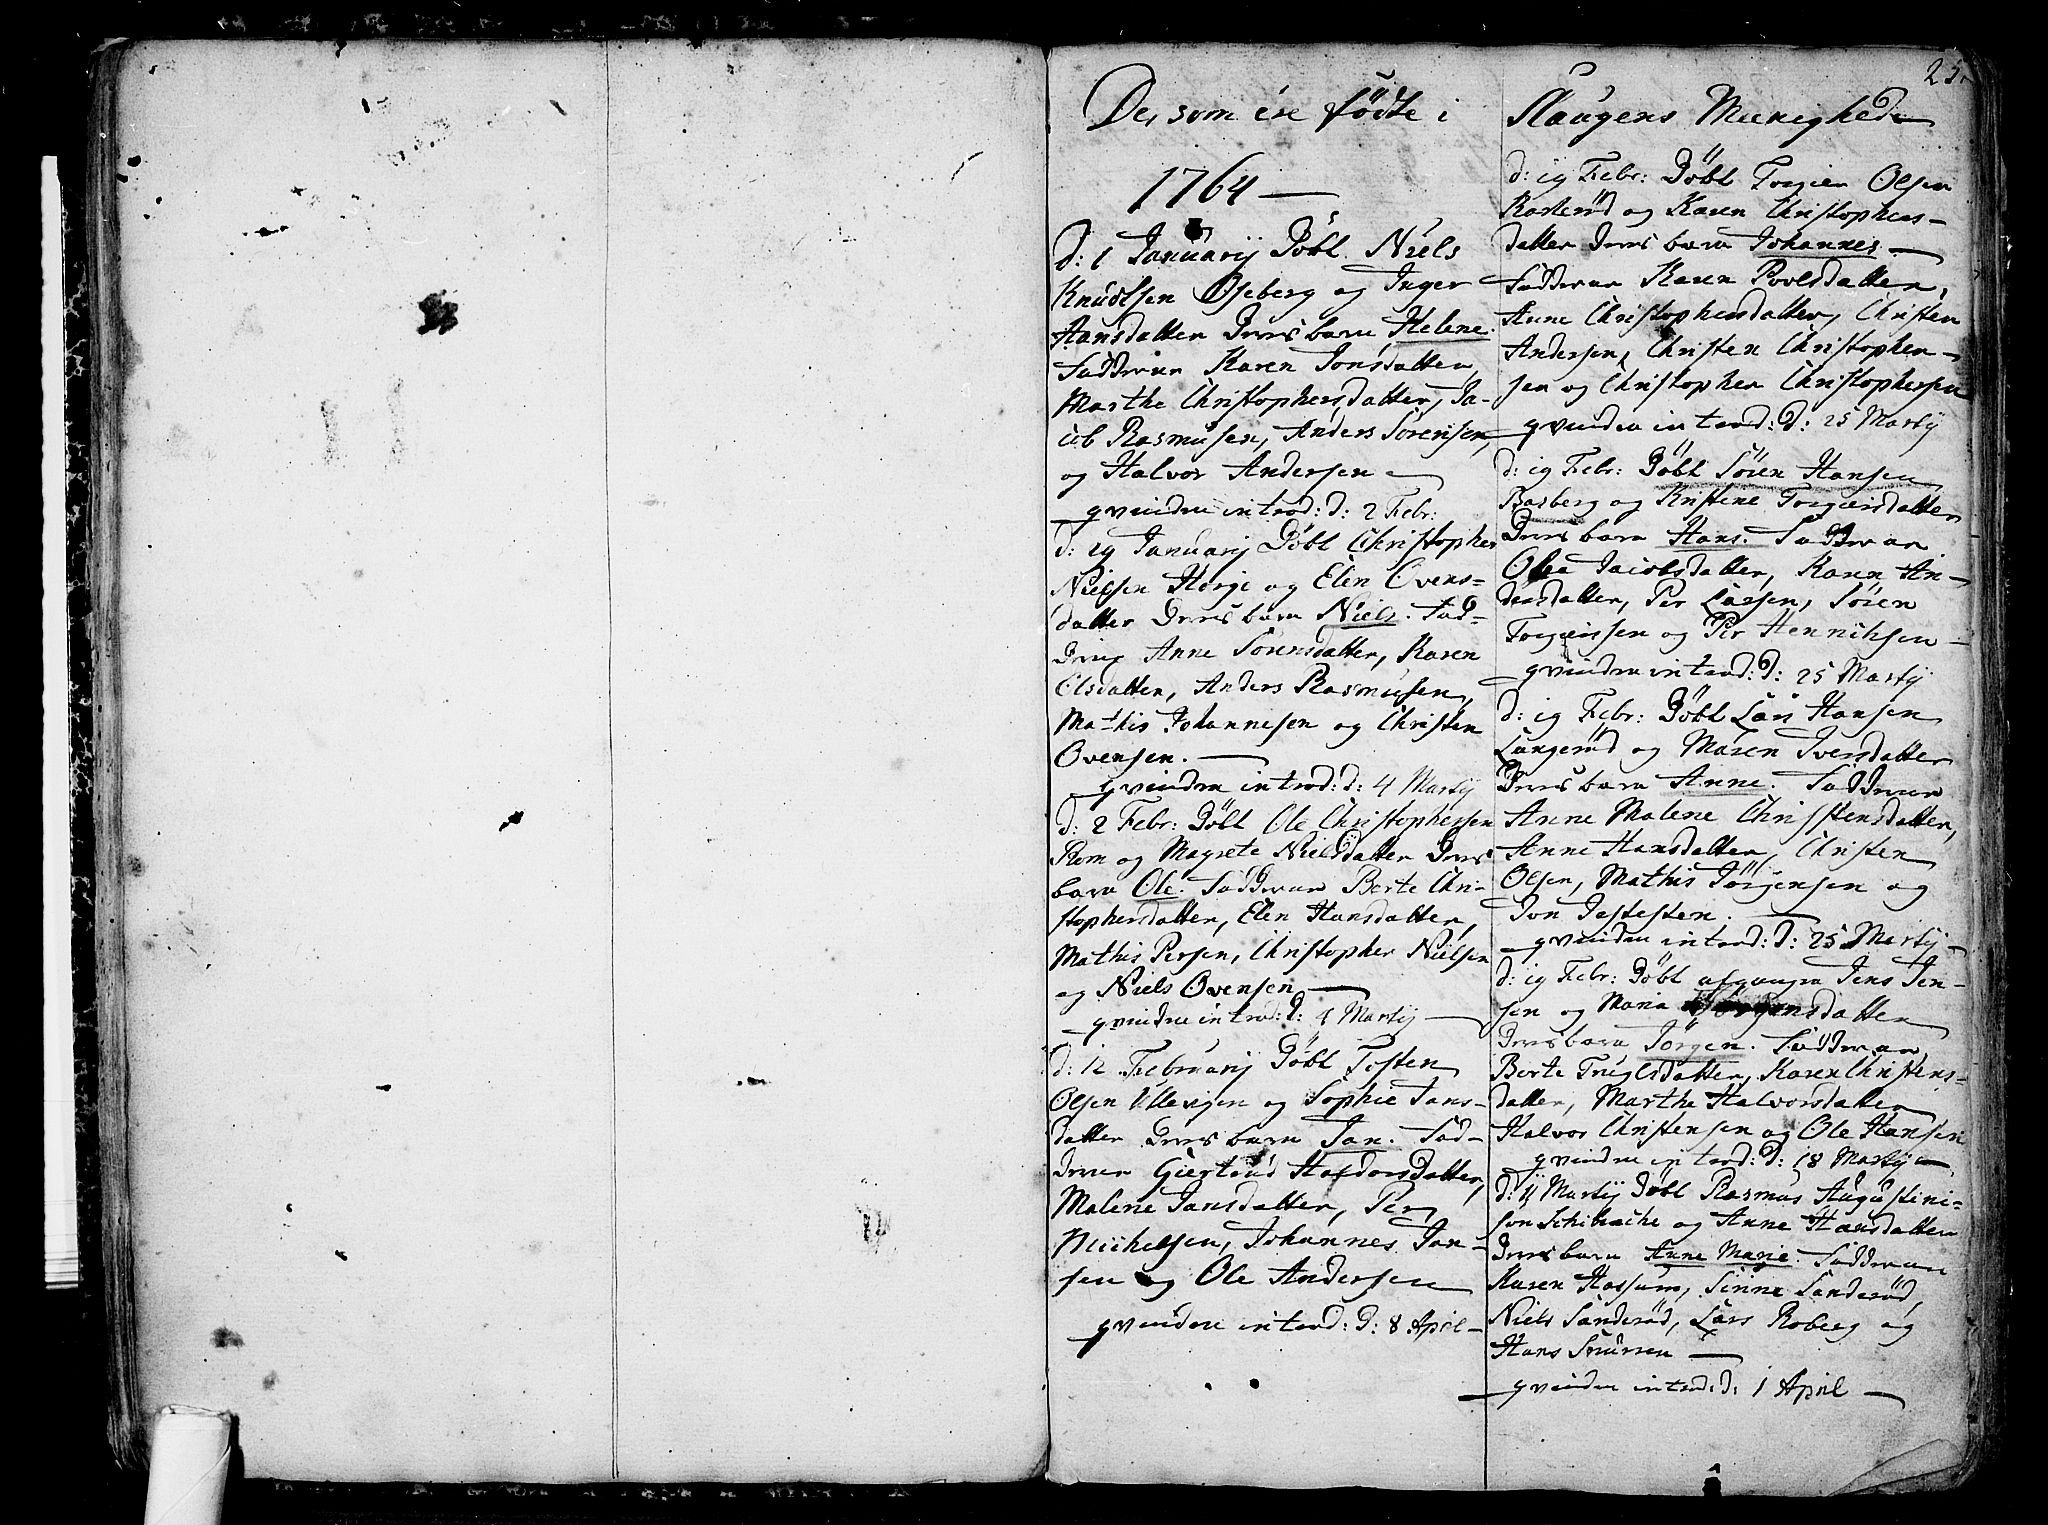 25.
De, som ere födte i Slaugens Menighed
1764
d: 1 Januarij Döbt Niels
Knudtsen Oseberg og Inger
Hansdatter Deres barn Helene.
Fadderne Karen Jonsdatter,
Marthe Christophersdatter, Ja-
cob Rasmusen, Anders Sörensen,
og Halvor Andersen
qvinden introd: d: 2 Febr:
d: 19 Januarij Döbt Christopher
Nielsen Horje og Elen Ovens-
datter Deres barn Niels. Fad-
derne Anne Sörensdatter, Karen
Olsdatter, Anders Rasmusen,
Mathis Johannesen og Christen
Ovensen.
qvinden introd: d: 4 Martij
d: 2 Febr: Döbt Ole Christophersen
Rom og Magrete Nielsdatter Deres
barn Ole. Fadderne Berte Chri-
stophersdatter, Elen Hansdatter,
Mathis Persen, Christopher Nielsen
og Niels Ovensen
qvinden introd: d: 4 Martij
d: 12 Februarij Döbt Tosten
Olsen Ullevigen og Sophie Jans-
datter Deres barn Jan. Fad-
derne Giertrud Haldorsdatter,
Malene Jansdatter, Per
Michelsen, Johannes Jan-
sen og Ole Andersen
qvinden introd: d: 8 April
d: 19 Febr: Döbt Torgier Olsen
Rosteröd og Karen Christophers-
datter Deres barn Johannes.
Fadderne Karen Povlsdatter,
Anne Christophersdatter, Christen
Andersen, Christen Christopher-
sen og Christopher Christophersen
qvinden introd: d: 25 Martij
d: 19 Febr: Döbt Sören Hansen
Basberg og Kristene Torgiersdatter
Deres barn Hans. Fadderne
Olea Jacobsdatter, Karen An-
dersdatter, Per Larsen, Sören
Torgiersen og Per Henrichsen
qvinden introd: d: 25 Martij
d: 19 Febr: Döbt Lars Hansen
Langeröd og Maren Iversdatter
Deres barn Anne. Fadderne
Anne Malene Christensdatter,
Anne Hansdatter, Christen
Olsen, Mathis Jörgensen og
Jon Jostesten.
qvinden introd: d: 25 Martij
d: 19 Febr: Döbt afgangne Jens Jen-
sen og Maria Jörgensdatter
Deres barn Jörgen. Fadderne
Berte Truglsdatter, Karen Christens-
datter, Marthe Halvorsdatter
Halvor Christensen og Ole Hansen
qvinden introd: d: 18 Martij
d: 4 Martij Döbt Rasmus Augustini-
son Schibache og Anne Hansdatter
Deres barn Anne Marie. Fadderne
Karen Hassum, Sinne Sanderöd,
Niels Sanderöd, Lars Roberg og
Hans
qvinden introd: d: 1 April